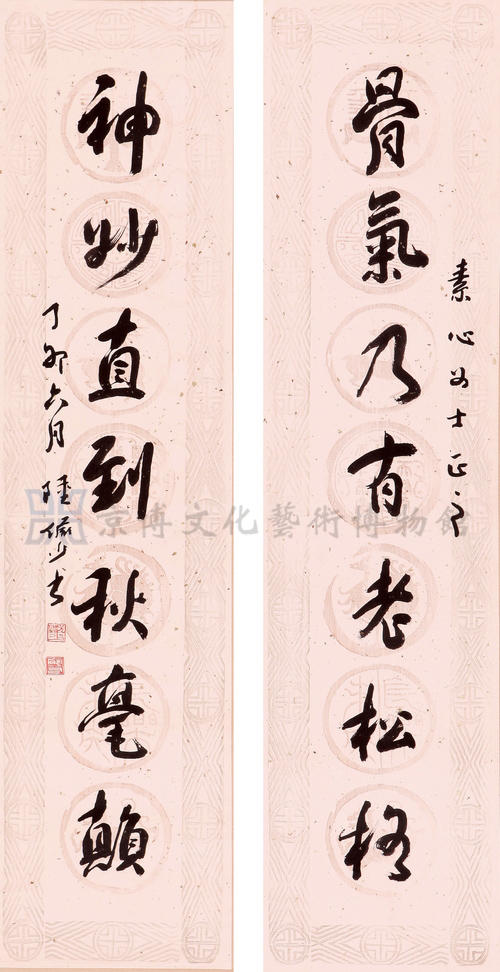 骨氣乃有老松格
素心女士正之
神妙直到秋毫顛
丁卯六月 陸儼少書
京博文化藝術博物館